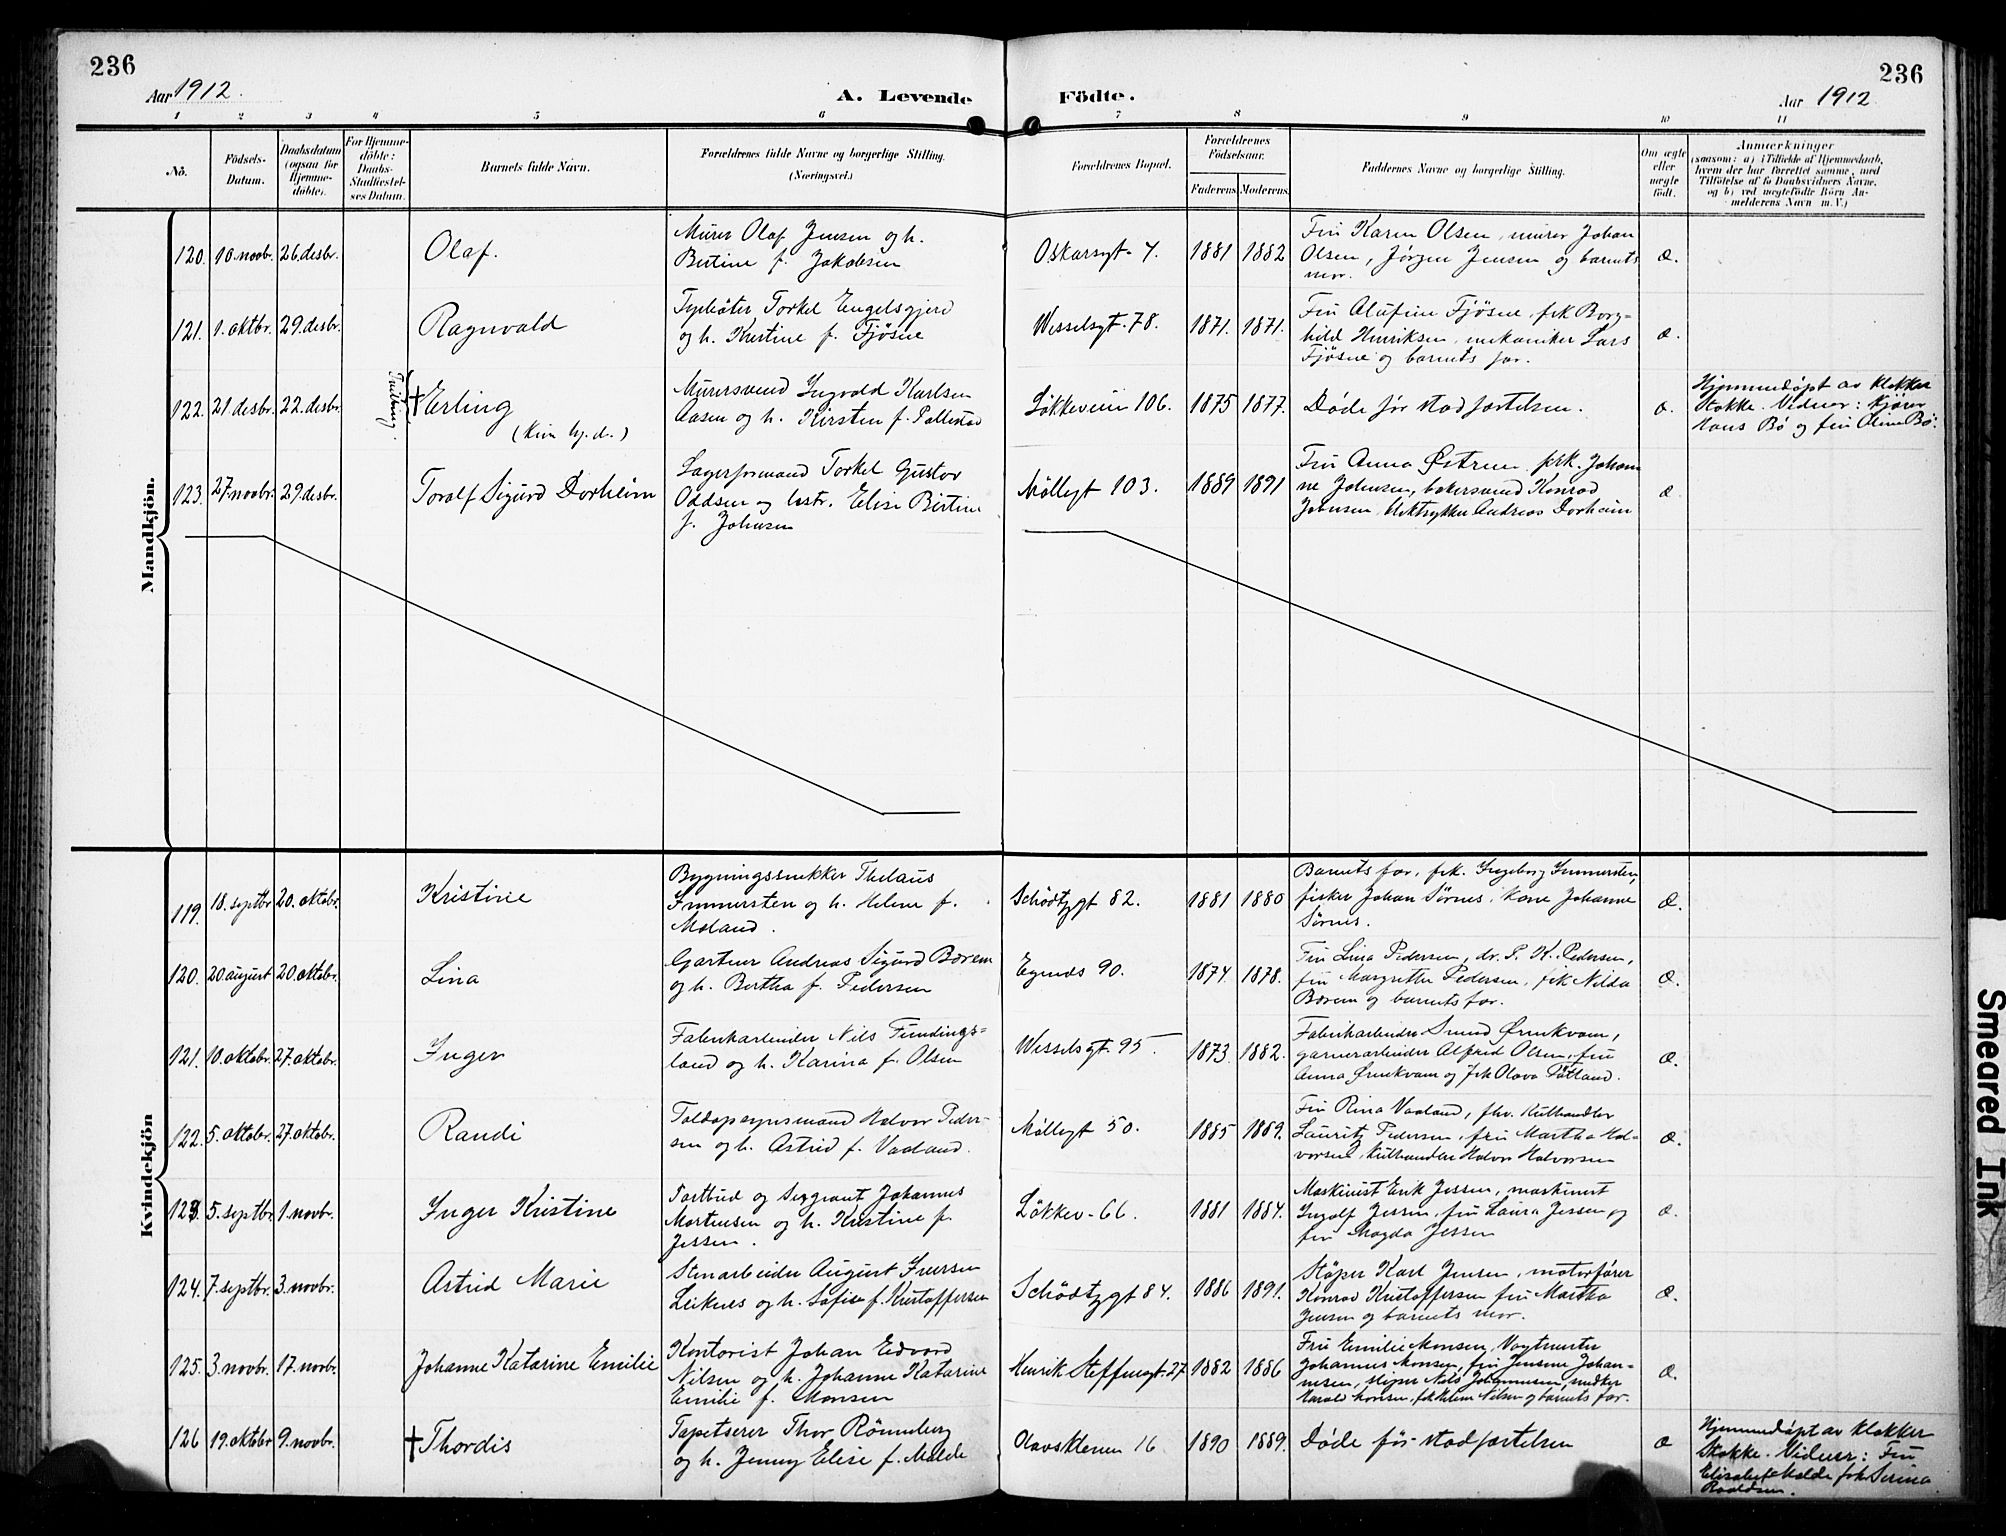 236
236
Aar 1912.
A. Levende
Födte.
Aar 1912
1 2 3 4 5 6 7 8 9 10 11
No.
Födsels-Datum.
Daabsdatum (ogsaa for Hjemme-döbte).
For Hjemme-döbte: Daabs-Stadfæstel-ses Datum.
Barnets fulde Navn.
Forældrenes fulde Navne og borgerlige Stilling. (Næringsvei.)
Forældrenes Bopæl.
Forældrenes Födselsaar.
Faderens Moderens
Faddernes Navne og borgerlige Stilling.
Om ægte eller uægte födt.
Anmærkninger
(saasom: a) i Tilfælde af Hjemmedaab,
hvem der har forrettet samme, med
Tilföielse af to Daabsvidners Navne,
og b) ved uægtefödte Börn An-
melderens Navn m. V.)
Mandkjön.
120. 10. novbr. 26. desbr. Olaf.
Murer Olaf Jensen og h.
Bertine f. Jakobsen
Oskarsgt. 7. 1881 1882
Fru Karen Olsen, murer Johan
Olsen, Jørgen Jensen og barnets
mor.
æ.
121. 1. oktbr. 29. desbr. Ragnvald
Torkel Engelsgjerd
og h. Kristine f. Fjøsne
Wesselsgt. 78. 1871. 1871.
Fru Alufine Fjøsne, frk Borg-
hild Henriksen, mekaniker Lars
Fjøsne og barnets far.
æ.
122. 21 desbr. 22. desbr. Tvilling. † Erling
(kun hj. d.)
Murersvend Ingvald Karlsen
Aasen og h. Kirsten f. Pallestad
Løkkeveien 106. 1875 1877.
Døde før stadfæstelsen.
æ.
Hjemmedøpt av klokker
Stokke. Vidner: kjører
Hans Bø og fru Oline Bø.
123. 27. novbr. 29. desbr. Toralf Sigurd Dorheim
Lagerformand Torkel Gustav
Oddsen og hstr. Elise Bertine
f. Johnsen
Møllegt 103. 1889 1891
Fru Anna Østrem, frk. Johan
ne Johnsen, bakersvend Konrad
Johnsen, bloktrykker Andreas Dorheim
æ
Kvindekjön
119. 18. septbr 20. oktobr. Kristine
Bygningssnekker Thelaus
Immersten og h. Helene f.
Moland.
Schödtzgt 82. 1881 1880
Barnets far, frk. Ingeborg Immersten,
fisker Johan Sørnes, kone Johanne
Sørnes.
æ.
120. 20 august 20. oktobr. Lina
Gartner Andreas Sigurd Borem
og h. Bertha f. Pedersen
Egenes 90. 1874. 1878.
Fru Lina Pedersen, dr. P. K. Pedersen,
fru Margrethe Pedersen, frk Nilda
Borem og barnets far.
æ.
121. 10. oktobr. 27. oktobr. Inger
Fabrikarbeider Nils Fundings-
land og h. Karina f. Olsen
Wesselsgt. 95 1873. 1882.
Fabrikarbeider Svend Ørnekvam,
garnerarbeider Alfred Olsen, fru
Anna Ørnekvam og frk Olava Tøtland.
æ.
122. 5. oktobr. 27. oktobr. Randi
Toldopsynsmand Halvor Peder-
sen og h. Astrid f. Vaaland.
Møllegt 50. 1885 1889.
Fru Rina Vaaland, fhv. kulhandler
Lauritz Pedersen, fru Martha Hal-
vorsen, kulhandler Halvor Halvorsen
æ.
123. 5. septbr. 1. novbr. Inger Kristine
Fortbud og sergeant Johannes
Mortensen og h. Kristine f.
Jessen.
Løkkev. 66. 1881 1884.
Maskinist Erik Jessen, maskinist
Ingolf Jessen, fru Laura Jessen og
fru Magda Jessen
æ.
124. 7. septbr. 3. novbr. Astrid Marie
Stenarbeider August Iversen
Leiknes og h. Sofie f. Kristoffersen
Schödtzgt 84. 1886 1891.
Støper Karl Jensen, motorfører
Konrad Kristoffersen fru Martha
Jensen og barnets mor.
æ.
125. 3. novbr. 17. novbr. Johanne Katarine Emilie
Kontorist Johan Edvard
Nilsen og h. Johanne Katarine
Emilie f. Monsen
Henrik Steffensgt. 27 1882 1886
Fru Emilie Monsen, Vagtmester
Johannes Monsen, fru Jensine Johan-
nesen, sliper Nils Johannesen, snedker
Harald Monsen, frk Helene Nilsen og barnets far.
æ.
126 19. oktobr 9. novbr. † Thordis
Tapetserer Thor Rönneberg
og h. Jenny Elise f. Malde
Olavskleven 16. 1890 1889.
Døde før stadfæstelsen
æ
Hjemmedøpt av klokker
Stokke. Vidner: Fru
Elisabet Malde frk Serina
Roaldsen.
Smeared Ink